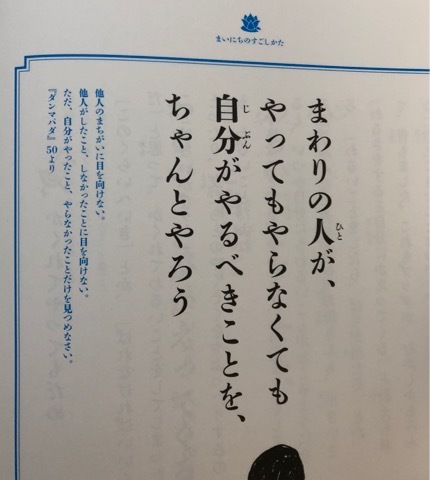 まいにちのすごしかた
まわりの人が、
ひと
やってもやらなくても
自分がやるべきことを、
じぶん
ちゃんとやろう
他人のまちがいに目を向けない。
他人がしたこと、しなかったことに目を向けない。
ただ、自分がやったこと、やらなかったことだけを見つめなさい。
『ダンマパダ』50より